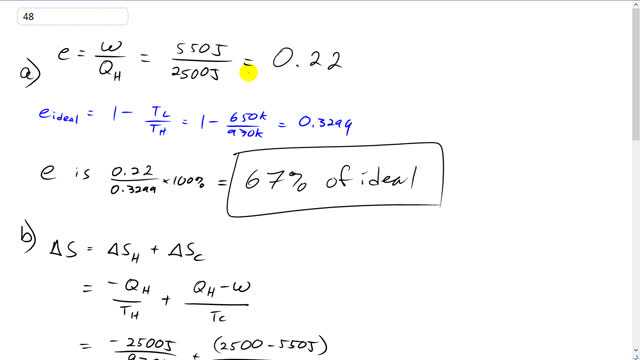 48
a) e = W/Q_H = 550J/2500J = 0.22
e_ideal = 1 - T_L/T_H = 1 - 650K/970K = 0.3299
e is 0.22/0.3299 × 100% = 67% of ideal
b) ΔS = ΔS_H + ΔS_C
= -Q_H/T_H + Q_H-W/T_C
= -2500J/ + (2500-550J)/